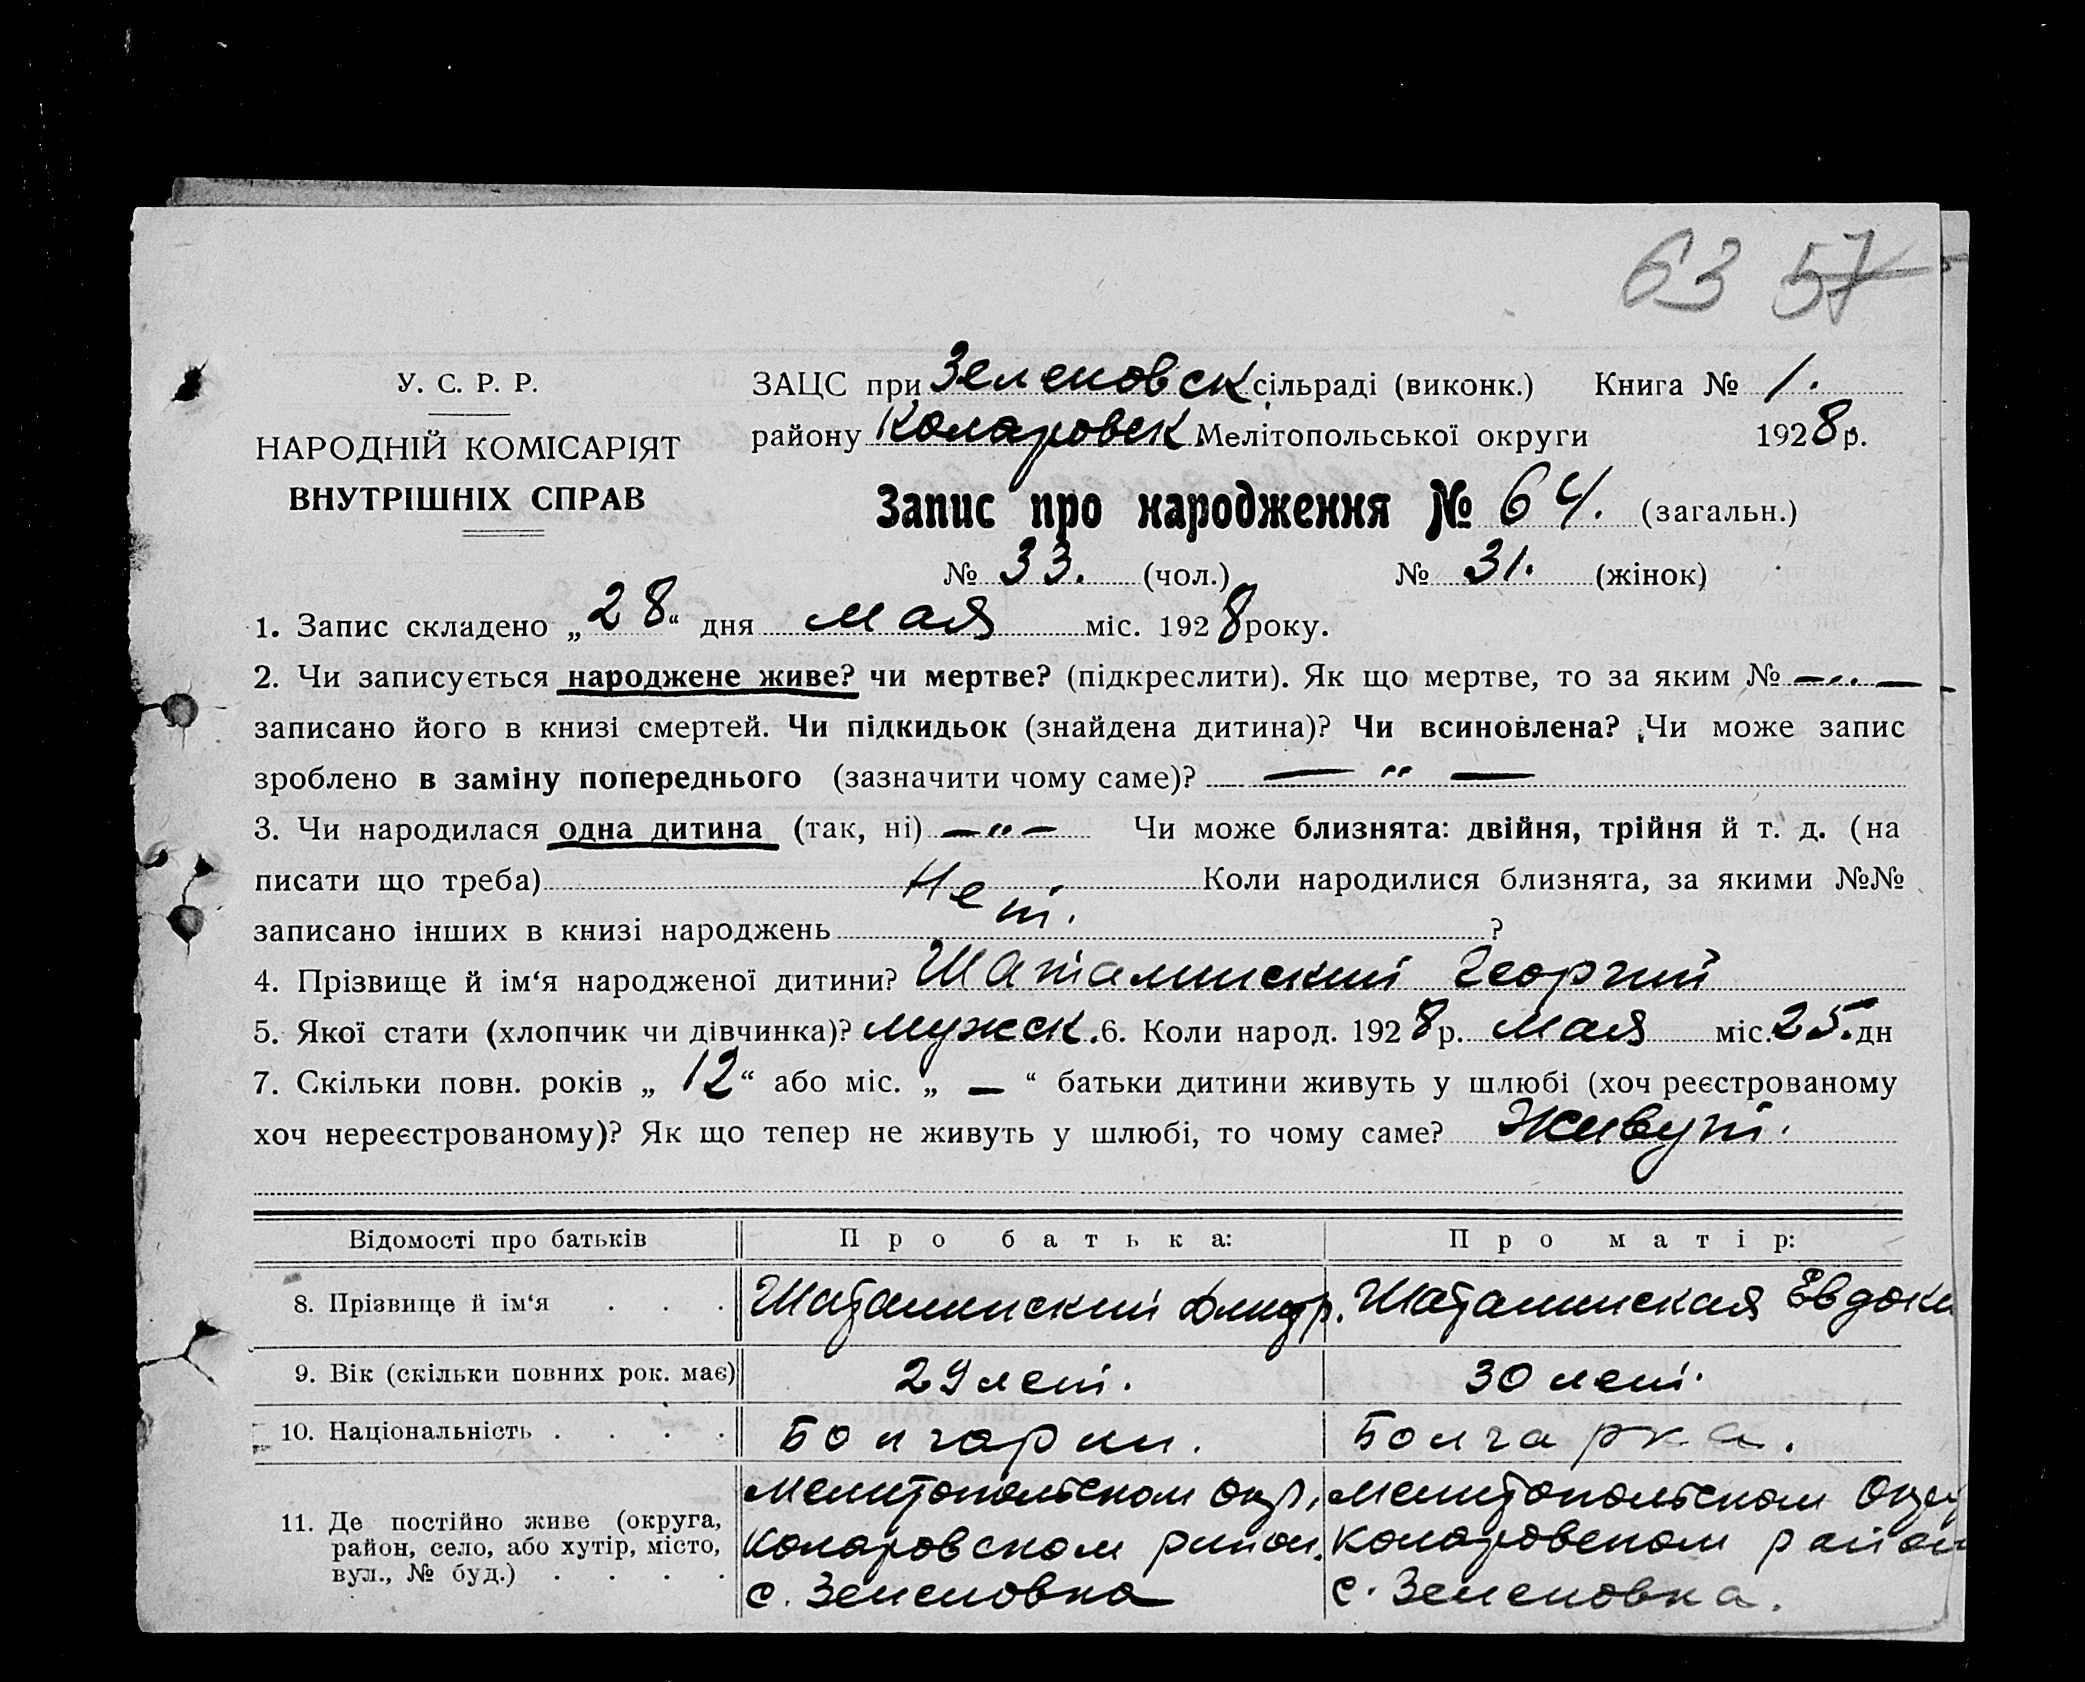 63 57
У. С. Р. Р.
НАРОДНІЙ КОМІСАРІЯТ
ВНУТРІШНІХ СПРАВ
ЗАЦС при Зеленовск сільраді (виконк.) Книга № 1.
району Коларовск Мелітопольської округи 1928 р.
Запис про народження № 64. (загальн.)
№ 33. (чол.) № 31. (жінок)
1. Запис складено „28“ дня мая міс. 1928 року.
2. Чи записується народжене живе? чи мертве? (підкреслити). Як що мертве, то за яким № —„—
записано його в книзі смертей. Чи підкидьок (знайдена дитина)? Чи всиновлена? Чи може запис
зроблено в заміну попереднього (зазначити чому саме)? — „ —
3. Чи народилася одна дитина (так, ні) —„— Чи може близнята: двійня, трійня й т. д. (на
писати що треба) Нет. Коли народилися близнята, за якими №№
записано інших в книзі народжень ?
4. Прізвище й ім‘я народженої дитини? Шаталинский Георгий
5. Якої стати (хлопчик чи дівчинка)? мужск. 6. Коли народ. 1928 р. мая міс. 25. дн
7. Скільки повн. років „12“ або міс. „—“ батьки дитини живуть у шлюбі (хоч реєстрованому
хоч нереєстрованому)? Як що тепер не живуть у шлюбі, то чому саме? Живут.
Відомості про батьків Про батька: Про матір:
8. Прізвище й ім‘я . . . Шаталинский Дмитр. Шаталинская Евдоки
9. Вік (скільки повних рок. має) 29 лет. 30 лет.
10. Національність . . . . Болгарин. Болгарка.
11. Де постійно живе (округа, район, село, або хутір, місто, вул., № буд.) . . . .
Мелитопольском Окр. Коларовском район. с. Зеленовка
Мелитопольском Окру Коларовском район с. Зеленовка.